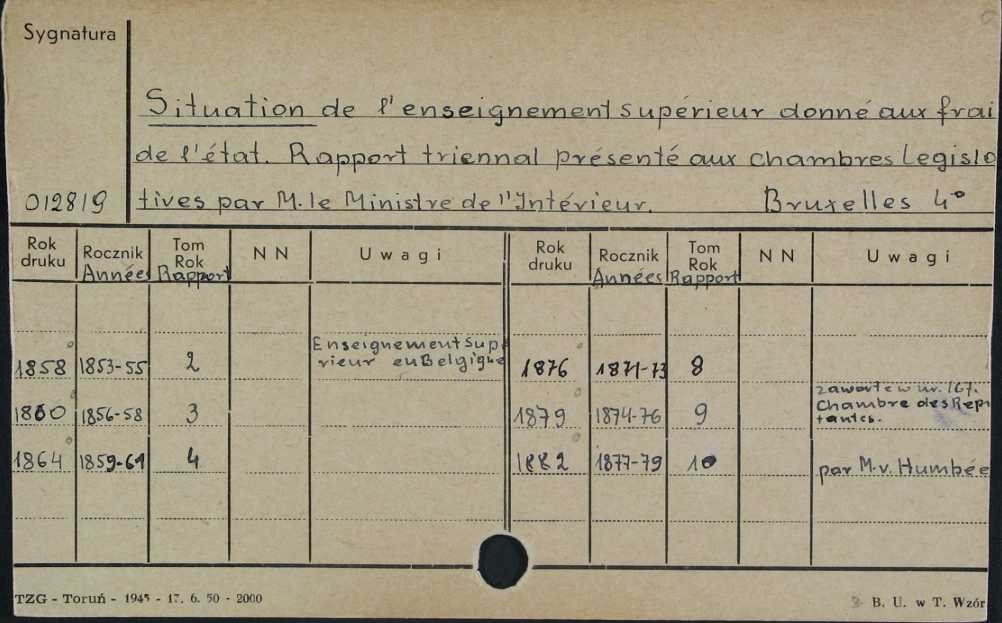 Sygnatura
Situation de l'enseignement supérieur donné aux frai
de l'état. Rapport triennal présenté aux chambres Legisla
012819 tives par M. le Ministre de l'Intérieur. Bruxelles 4°
Rok druku Rocznik Années Tom Rok Rapport NN Uwagi Rok druku Rocznik Années Tom Rok Rapport NN Uwagi
1858 1853-55 2 Enseignement Supé rieur en Belgique 1876 1871-73 8
1860 1856-58 3 1879 1874-76 9 zawarte w nr. 167. Chambre des Repr tantes.
1864 1859-61 4 1882 1877-79 10 par M. v. Humbée
TZG - Toruń - 1945 - 17. 6. 50 - 2000 B. U. w T. Wzór